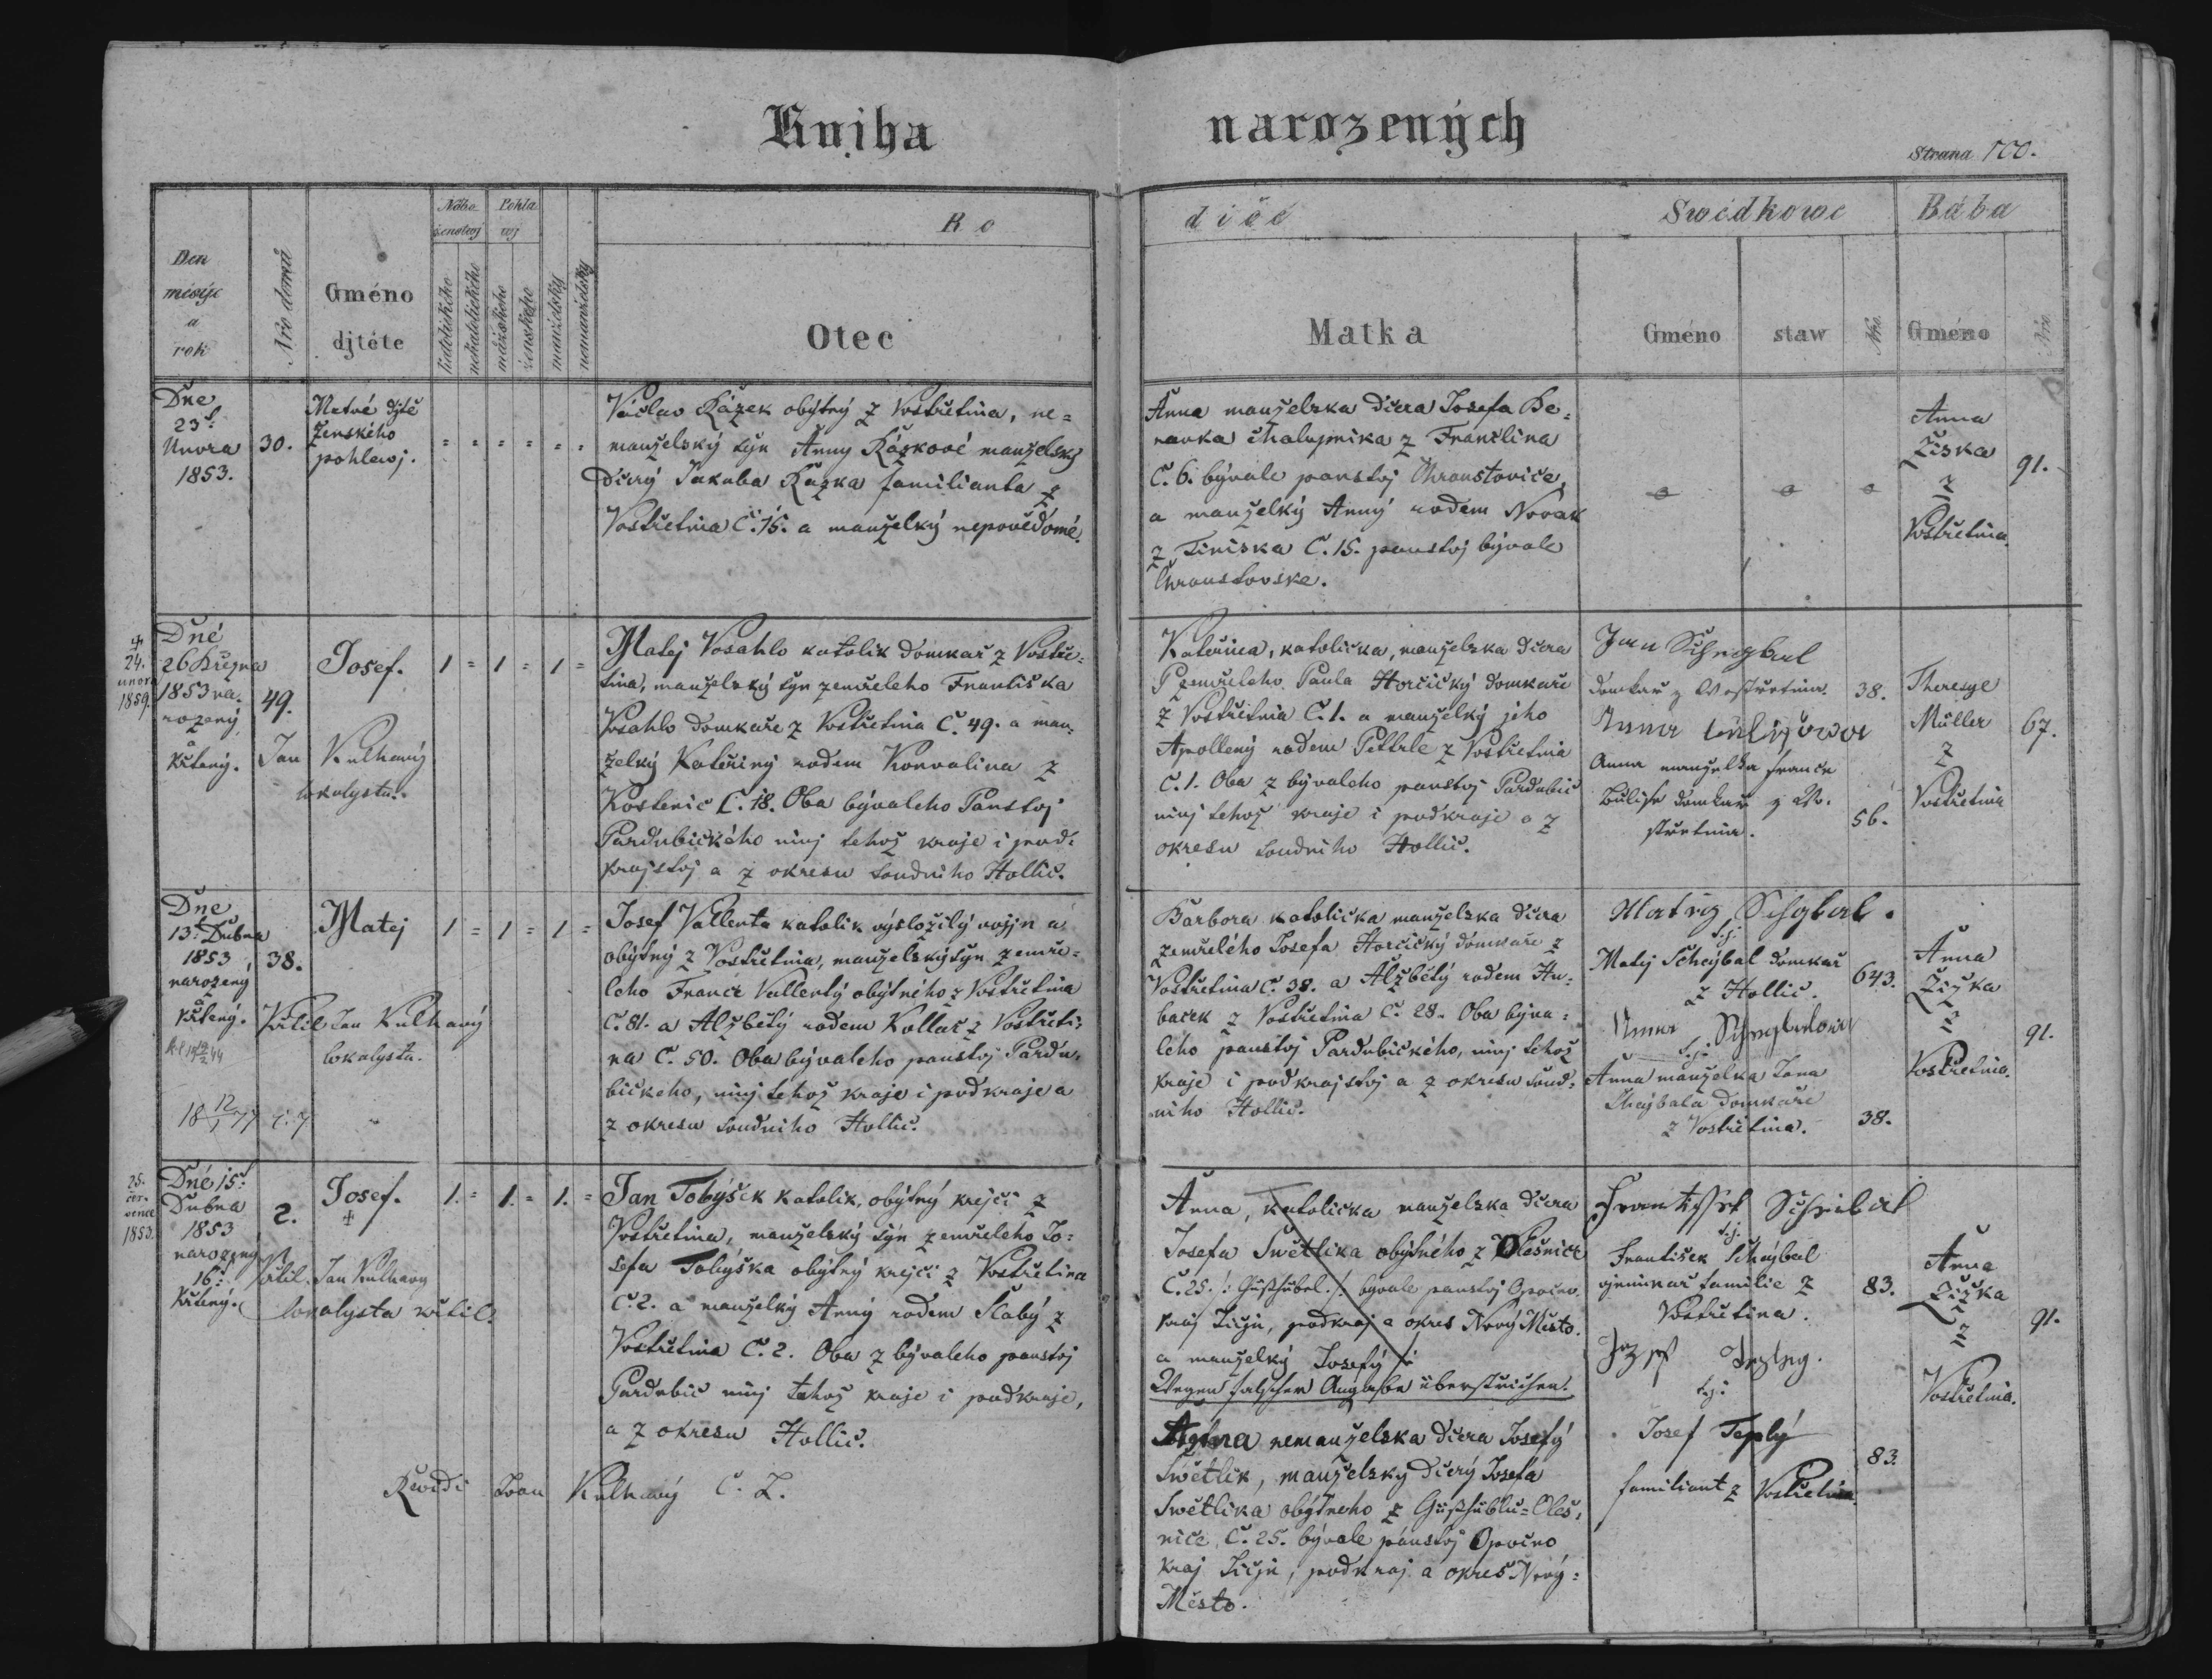 Kniha narozených
Strana 100.
Nábo ženstwj
Pohla wj
R o d i č é
Swědkowé
Bába
Den měsýc a rok
Nro domů
Gméno djtěte
katolického
nekatolického
mužského
ženského
manželský
nemanželský
Otec
Matka
Gméno
staw
Nro.
Gméno
Nro.
Dne
23ł
Unora
1853.
30.
Mrtvé djtě
ženského
pohlawj.
Václav Kázek obýtný z Vostřetina, ne=
manželský syn Anny Kázkové manželský
dcerý Jakuba Kázka familianta z
Vostřetina Č. 15. a manželký nepovědomé.
Anna manželska dcera Josefa Be=
ranka chalupnika z Franclina
Č. 6. bývale panstvj Chroustovice,
a manželký Anný rodem Novak
z Tiniska Č. 15. panstvj bývale
Chroustovske.
Anna
Žiska
z
Vostřetina.
91.
+
24.
unora
1859.
Dné
26 Března
1853 na=
rozený
Křtěný.
49.
Josef.
Jan Kulhavý
lokalysta.
1 = 1 = 1 =
Matej Vosahlo katolik domkař z Vostře=
tina, manželský syn zemřeleho Františka
Vosahlo domkaře z Vostřetina Č. 49. a man=
želký Kateřiný rodem Konvalina z
Kostenic Č. 18. Oba bývaleho Panstvj
Pardubického ninj tehož kraje i pod=
krajstvj a z okresu soudniho Hollic.
Kateřina, katolička, manželska dcera
zemřeleho Paula Horčický domkaře
z Vostřetina Č. 1. a manželký jeho
Apollený rodem Pettrle z Vostřetina
Č. 1. Oba z bývaleho panstvj Pardubic
ninj tehož kraje i podkraje a z
okresu soudniho Hollic.
Jan Schejbal
domkař z Wostřetina.
38.
Anna
Anna manželka France
domkař z Wo=
střetina.
56.
Theresye
Müller
z
Vostřetina
67.
Dne
13ł Dubna
1853
narozený
Křtěný.
38.
Matej
Křtil Jan Kulhavý
lokalysta.
1 = 1 = 1 =
Josef Vallenta katolik výsložilý vojjn a
obýtný z Vostřetina, manželský syn zemře=
leho Franće Vallentý obýtného z Vostřetina
Č. 81. a Alžbětý rodem Kollař z Vostřeti=
na Č. 50. Oba bývaleho panstvj Pardu=
bickeho, ninj tehož kraje i podkraje a
z okresu soudniho Hollic.
Barbora katolička manželska dcera
zemřelého Josefa Horčický domkaře z
Vostřetina Č. 38. a Alžbětý rodem Hu=
baček z Vostřetina Č. 28. Oba býva=
lého panstvj Pardubického, ninj tehož
kraje i podkrajstvj a z okresu soud=
niho Hollic.
Matej Schejbal.
Matej Schejbal domkař
z Hollic.
643.
Anna Schejbalowa
Anna manželka Jana
Shejbala domkaře
z Vostřetina.
38.
Anna
Žižka
z
Vostřetina.
91.
25.
čer=
vence
1853.
Dné 15ł
Dubna
1853
narozený
16ł
Křtěný.
2.
Josef.
+
Křtil Jan Kulhavy
lokalysta křtil.
1. = 1. = 1. =
Jan Tobýšek katolik, obýtný krejči z
Vostřetina, manželský sýn zemřeleho Jo=
sefa Tobýška obýtný krejči z Vostřetina
Č. 2. a manželký Anný rodem Slabý z
Vostřetina Č. 2. Oba z bývaleho panstvj
Pardubic ninj tehož kraje i podkraje,
a z okresu Hollic.
Anna, katolicka manželska dcera
Josefa Swětlika obýtného z Olešnice
Č. 25. /: Gießhübel :/ bývale panstvj Opočno
kraj Jičjn, podkraj a okres Nový Město.
a manželký Josefý
Wegen falscher Angabe überstrichen.
Anna nemanželska dcera Josefý
Swětlik, manželský dcerý Josefa
Swětlika obýtneho z Gießhüblu=Oleš=
nice Č. 25. bývale panstvj Opočno
kraj Jičjn, podkraj a okres Nový=
Město.
František Schejbal
František Schejbal
familie z
Vostřetina.
83.
Josef Teplý
familiant z Vostřetina.
83.
Anna
Žižka
z
Vostřetina.
91.
Revidi Joan Kulhavý C. L.